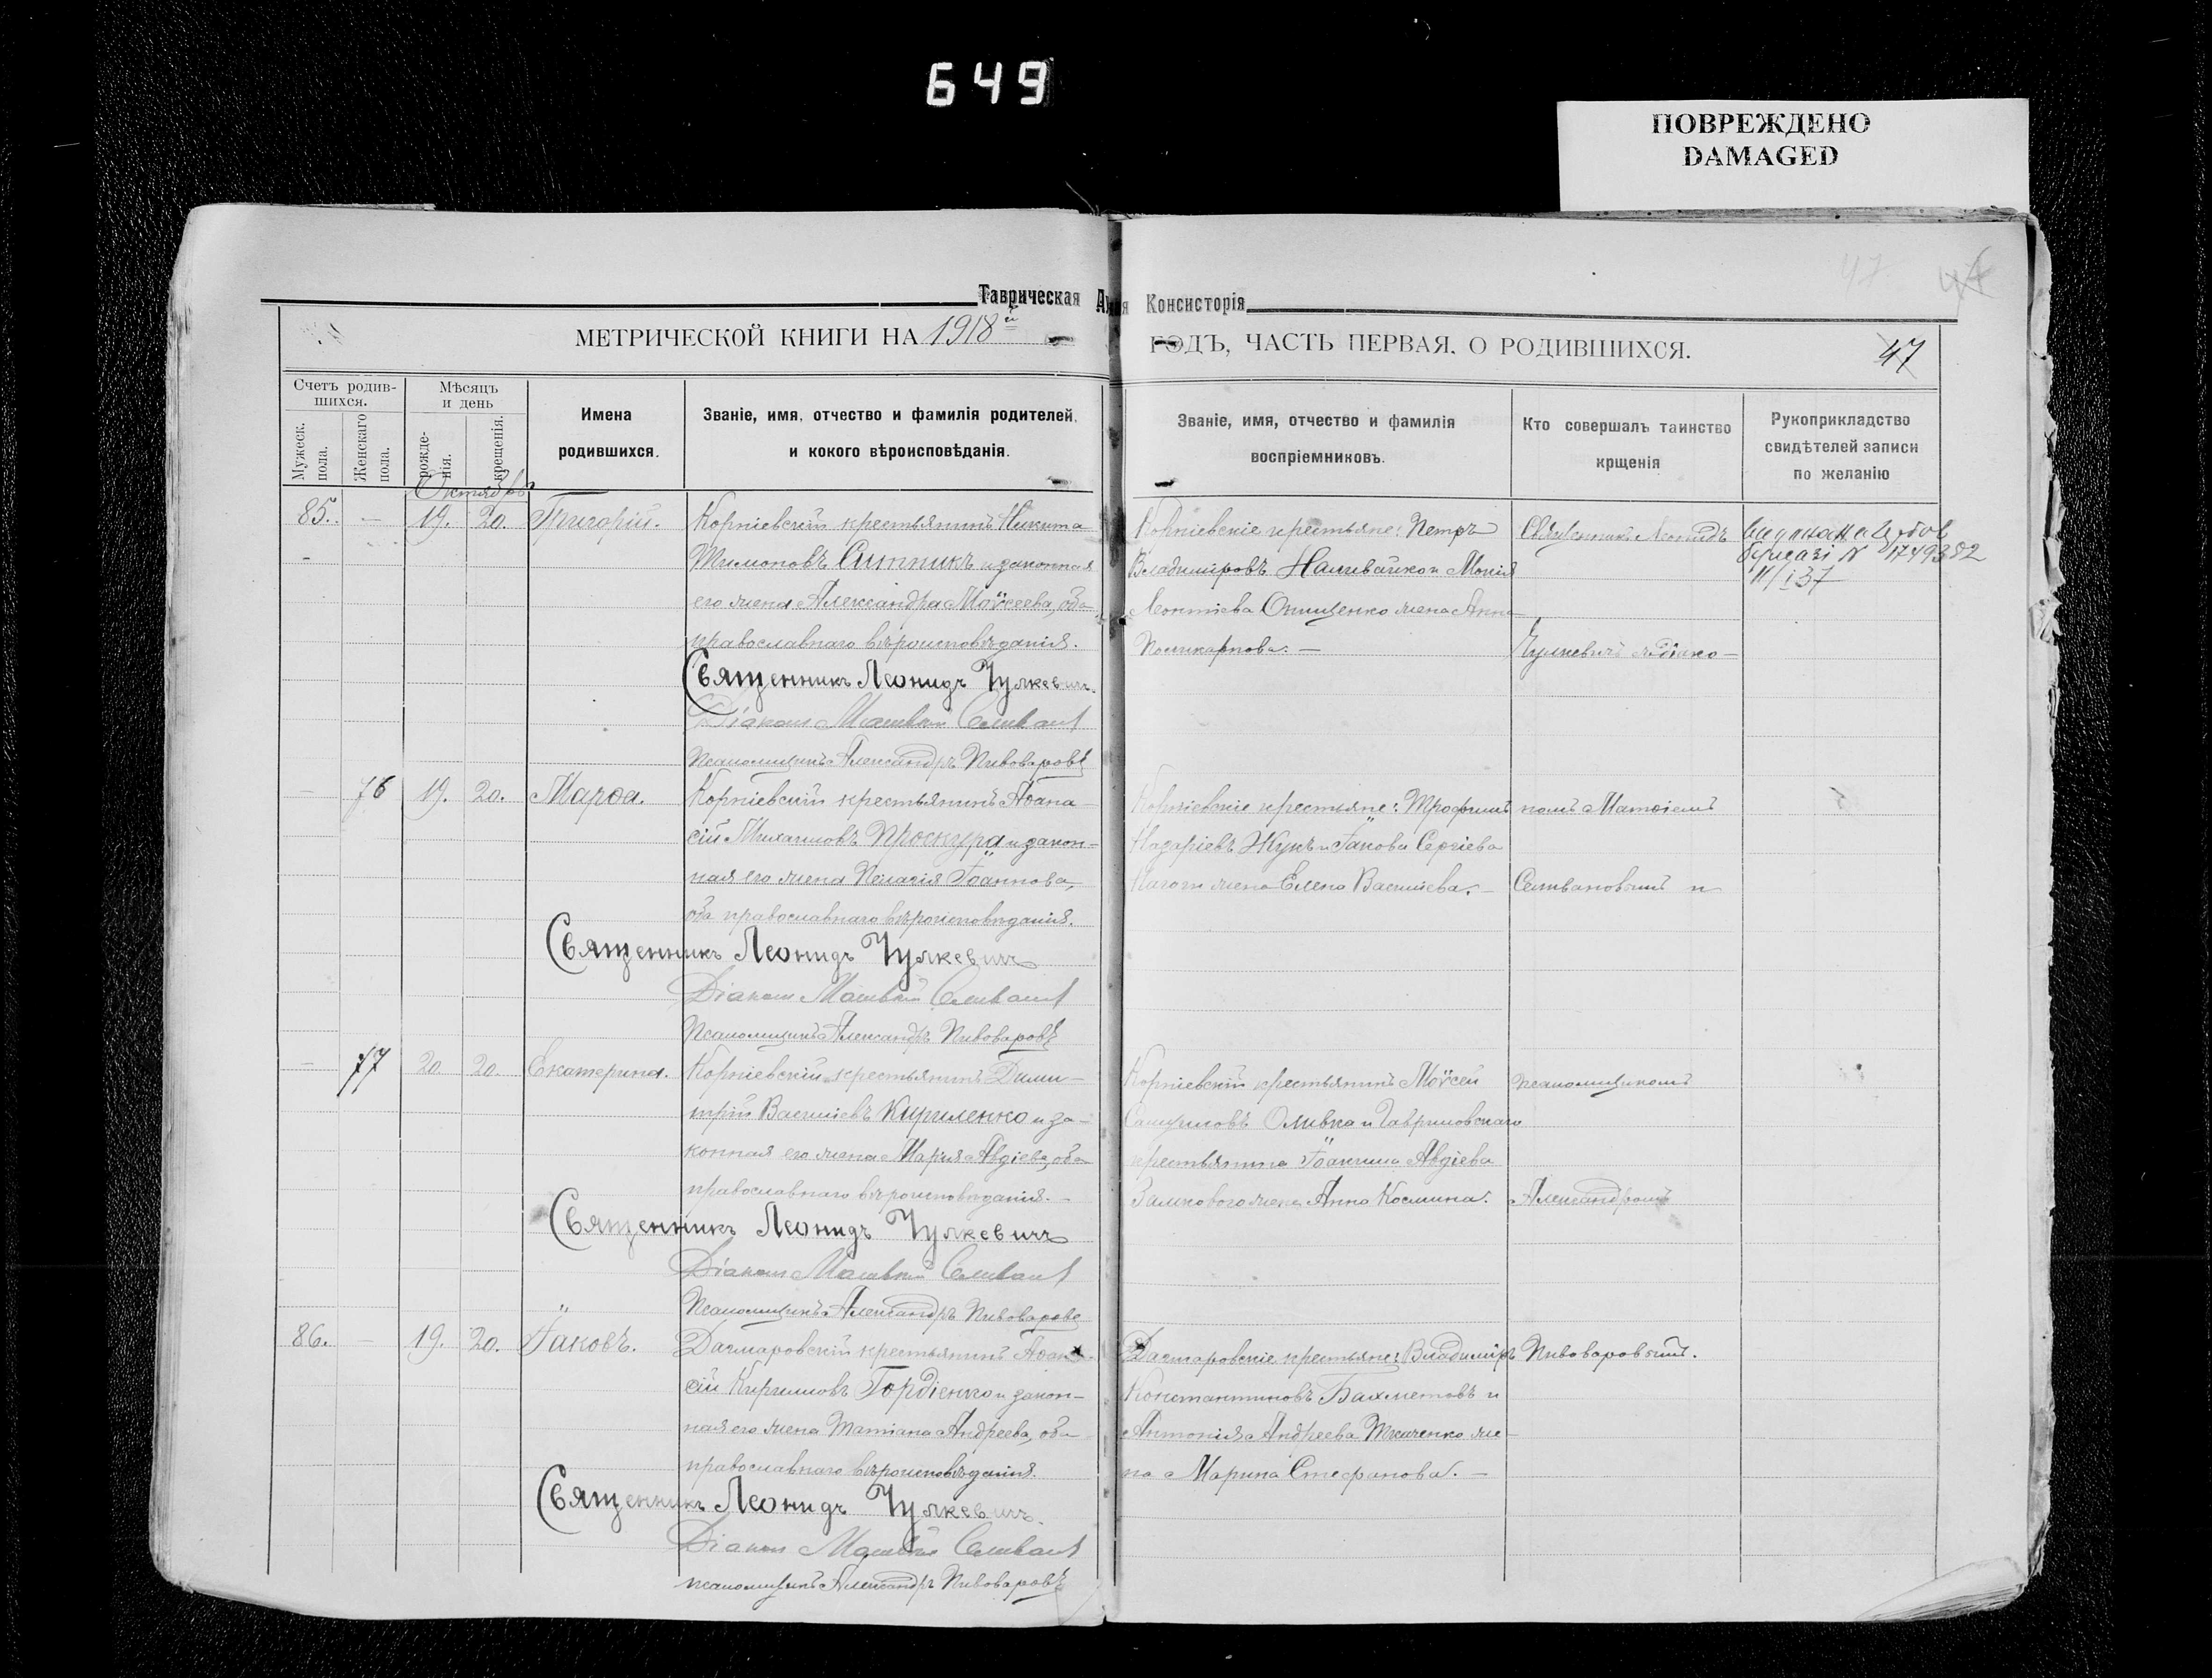 649
ПОВРЕЖДЕНО
DAMAGED
Таврическая Консисторія
47
МЕТРИЧЕСКОЙ КНИГИ НА 1918й ГОДЪ, ЧАСТЬ ПЕРВАЯ, О РОДИВШИХСЯ.
47
Счетъ родив-
шихся.
Мужеск. пола.
Женскаго пола.
Мѣсяцъ
и день
рожде-
нія.
крещенія.
Имена
родившихся.
Званіе, имя, отчество и фамилія родителей,
и кокого вѣроисповѣданія.
Званіе, имя, отчество и фамилія
воспріемниковъ.
Кто совершалъ таинство
крщенія
Рукоприкладство
свидѣтелей записи
по желанію
Октябрь
85. — 19. 20. Григорій.
Корніевскій крестьянинъ Никита
Тимоновъ Ситникъ и законная
его жена Александра Моѵсеева, оба
православнаго вѣроисповѣданія.
Священникъ Леонидъ Чулкевичъ.
Діаконъ Матвѣй
Псаломщикъ Александръ Пивоваровъ
Корніевскіе крестьяне: Петръ
Владиміровъ Наливайко и
Леонтіева Онищенко жена Анна
Поликарпова. —
Священникъ Леонидъ
Чулкевичъ съ діако-
N 1749382
11/I 37
— 76 19. 20. Марѳа.
Корніевскій крестьянинъ Аѳана-
сій Михаиловъ Проскура и закон-
ная его жена Пелагія Іоаннова,
оба православнаго вѣроисповѣданія.
Священникъ Леонидъ Чулкевичъ
Діаконъ Матвѣй
Псаломщикъ Александръ Пивоваровъ
Корніевскіе крестьяне: Трофимъ
Назаріевъ Жукъ и Іакова Сергіева
жена Елена Васильева. —
номъ Матѳіемъ
Селивановымъ и
— 77 20. 20. Екатерина.
Корніевскій крестьянинъ Дими-
трій Васильевъ Кириленко и за-
конная его жена Марія Авдіева, оба
православнаго вѣроисповѣданія. —
Священникъ Леонидъ Чулкевичъ
Діаконъ Матвѣй
Псаломщикъ Александръ Пивоваровъ
Корніевскій крестьянинъ Моѵсей
Самуиловъ Оливка и Гавриловскаго
крестьянина Авдіева
жена Анна Космина.
псаломщикомъ
Александромъ
86. — 19. 20. Іаковъ.
Дагмаровскій крестьянинъ Аѳана-
сій Кирилловъ Гордіенко и закон-
ная его жена Татіана Андреева, оба
православнаго вѣроисповѣданія.
Священникъ Леонидъ Чулкевичъ.
Діаконъ Матвѣй
псаломщикъ Александръ Пивоваровъ
Дагмаровскіе крестьяне: Владиміръ
Константиновъ Бахметовъ и
Антонія Андреева Ткаченко же-
на Марина Стефанова. —
Пивоваровымъ.